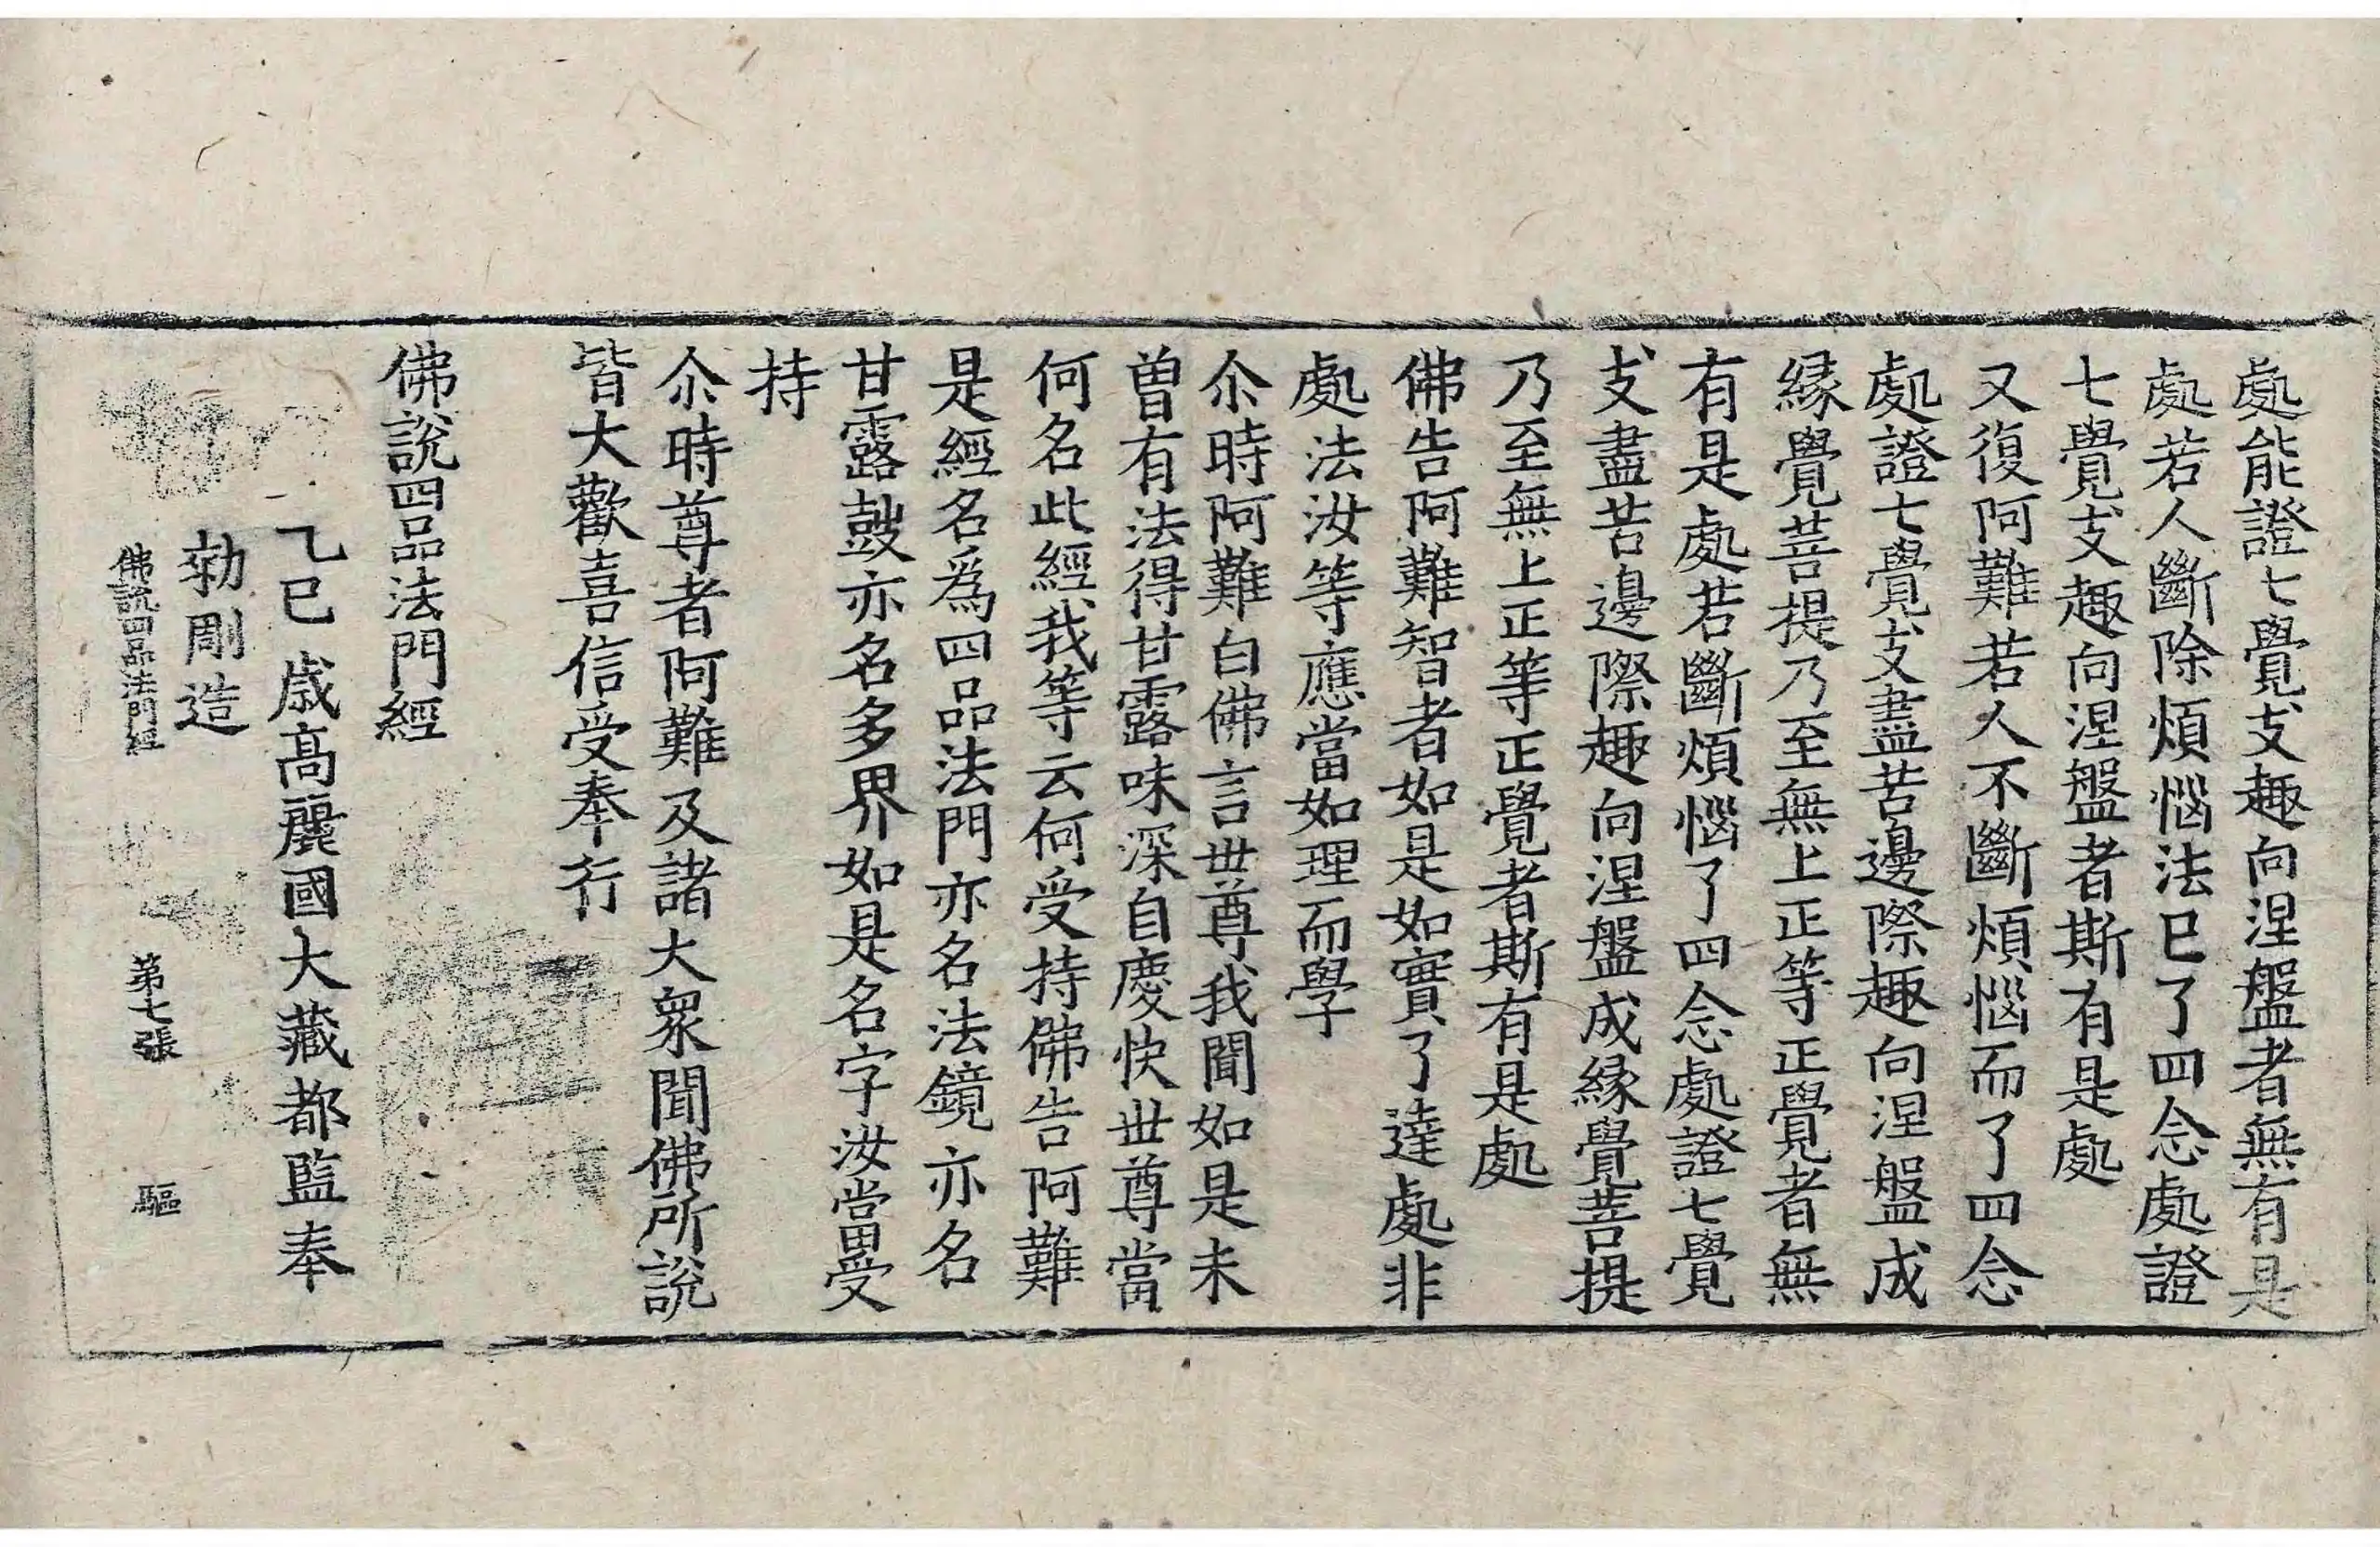 處能證七覺支趣向涅盤者無有是
處若人斷除煩惱法已了四念處證
七覺支趣向涅盤者斯有是處
又復阿難若人不斷煩惱而了四念
處證七覺支盡苦邊際趣向涅盤成
緣覺菩提乃至無上正等正覺者無
有是處若斷煩惱了四念處證七覺
支盡苦邊際趣向涅盤成緣覺菩提
乃至無上正等正覺者斯有是處
佛告阿難智者如是如實了達處非
處法汝等應當如理而學
尒時阿難白佛言世尊我聞如是未
曽有法得甘露味深自慶快世尊當
何名此經我等云何受持佛告阿難
是經名爲四品法門亦名法鏡亦名
甘露鼓亦名多界如是名字汝當受
持
尒時尊者阿難及諸大衆聞佛所說
皆大歡喜信受奉行
佛說四品法門經
乙巳歳高麗國大藏都監奉
勑彫造
佛說四品法門經 第七張 驅